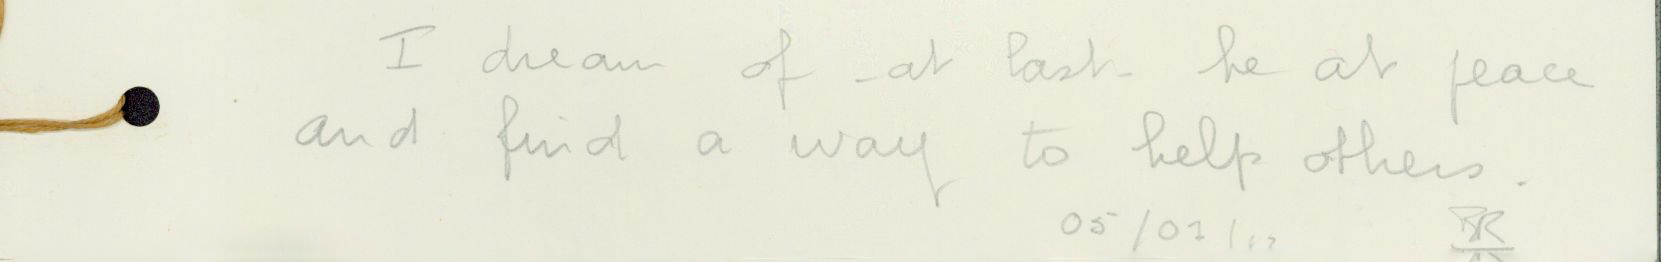 I dream of - at last - be at peace
and find a way to help others.
05/01/12